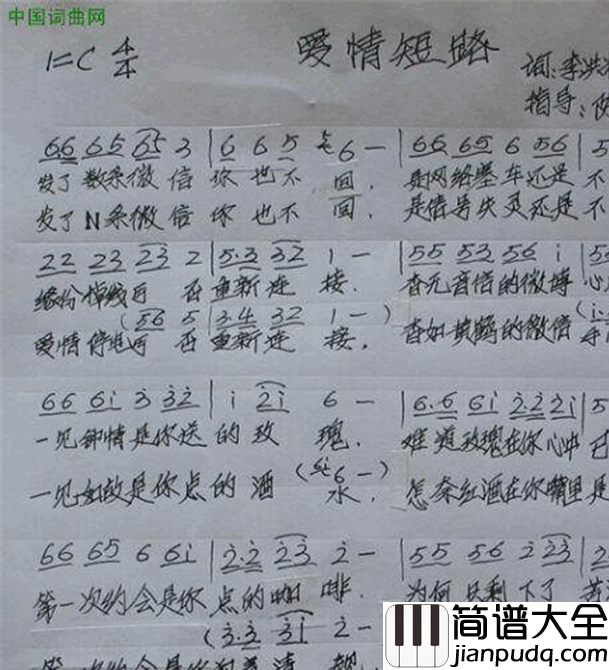 中国词曲网
1=C 4/4 爱情短路 词:李洪
指导:
66 65 65 3 | 6 6 5 6 — | 66 65 6 56 | 5
发了数条微信你也不回. 是网络塞车还是不
发了N条微信你也不回. 是信号失灵还是不
22 23 23 2 | 5·3 32 1 — | 55 53 56 i | 5
缘份掉线可否重新连接. 杳无音信的微博心
(56 5 | 3·4 32 1 —) (i
爱情停电可否重新连接. 杳如黄鹤的微信
66 6i 3 32 | i 2i 6 — | 6·6 6i 222i | 5
一见钟情是你送的玫瑰. 难道玫瑰在你心中已
(6 —)
一见如故是你点的酒水. 怎奈红酒在你嘴里是
66 65 6 6i | 2·2 23 2 — | 55 56 2 23 | 2
第一次约会是你点的咖啡. 为何只剩下了苦
(3·3 3i 2 —
第一次约会是你
简谱大全
jianpudq.com